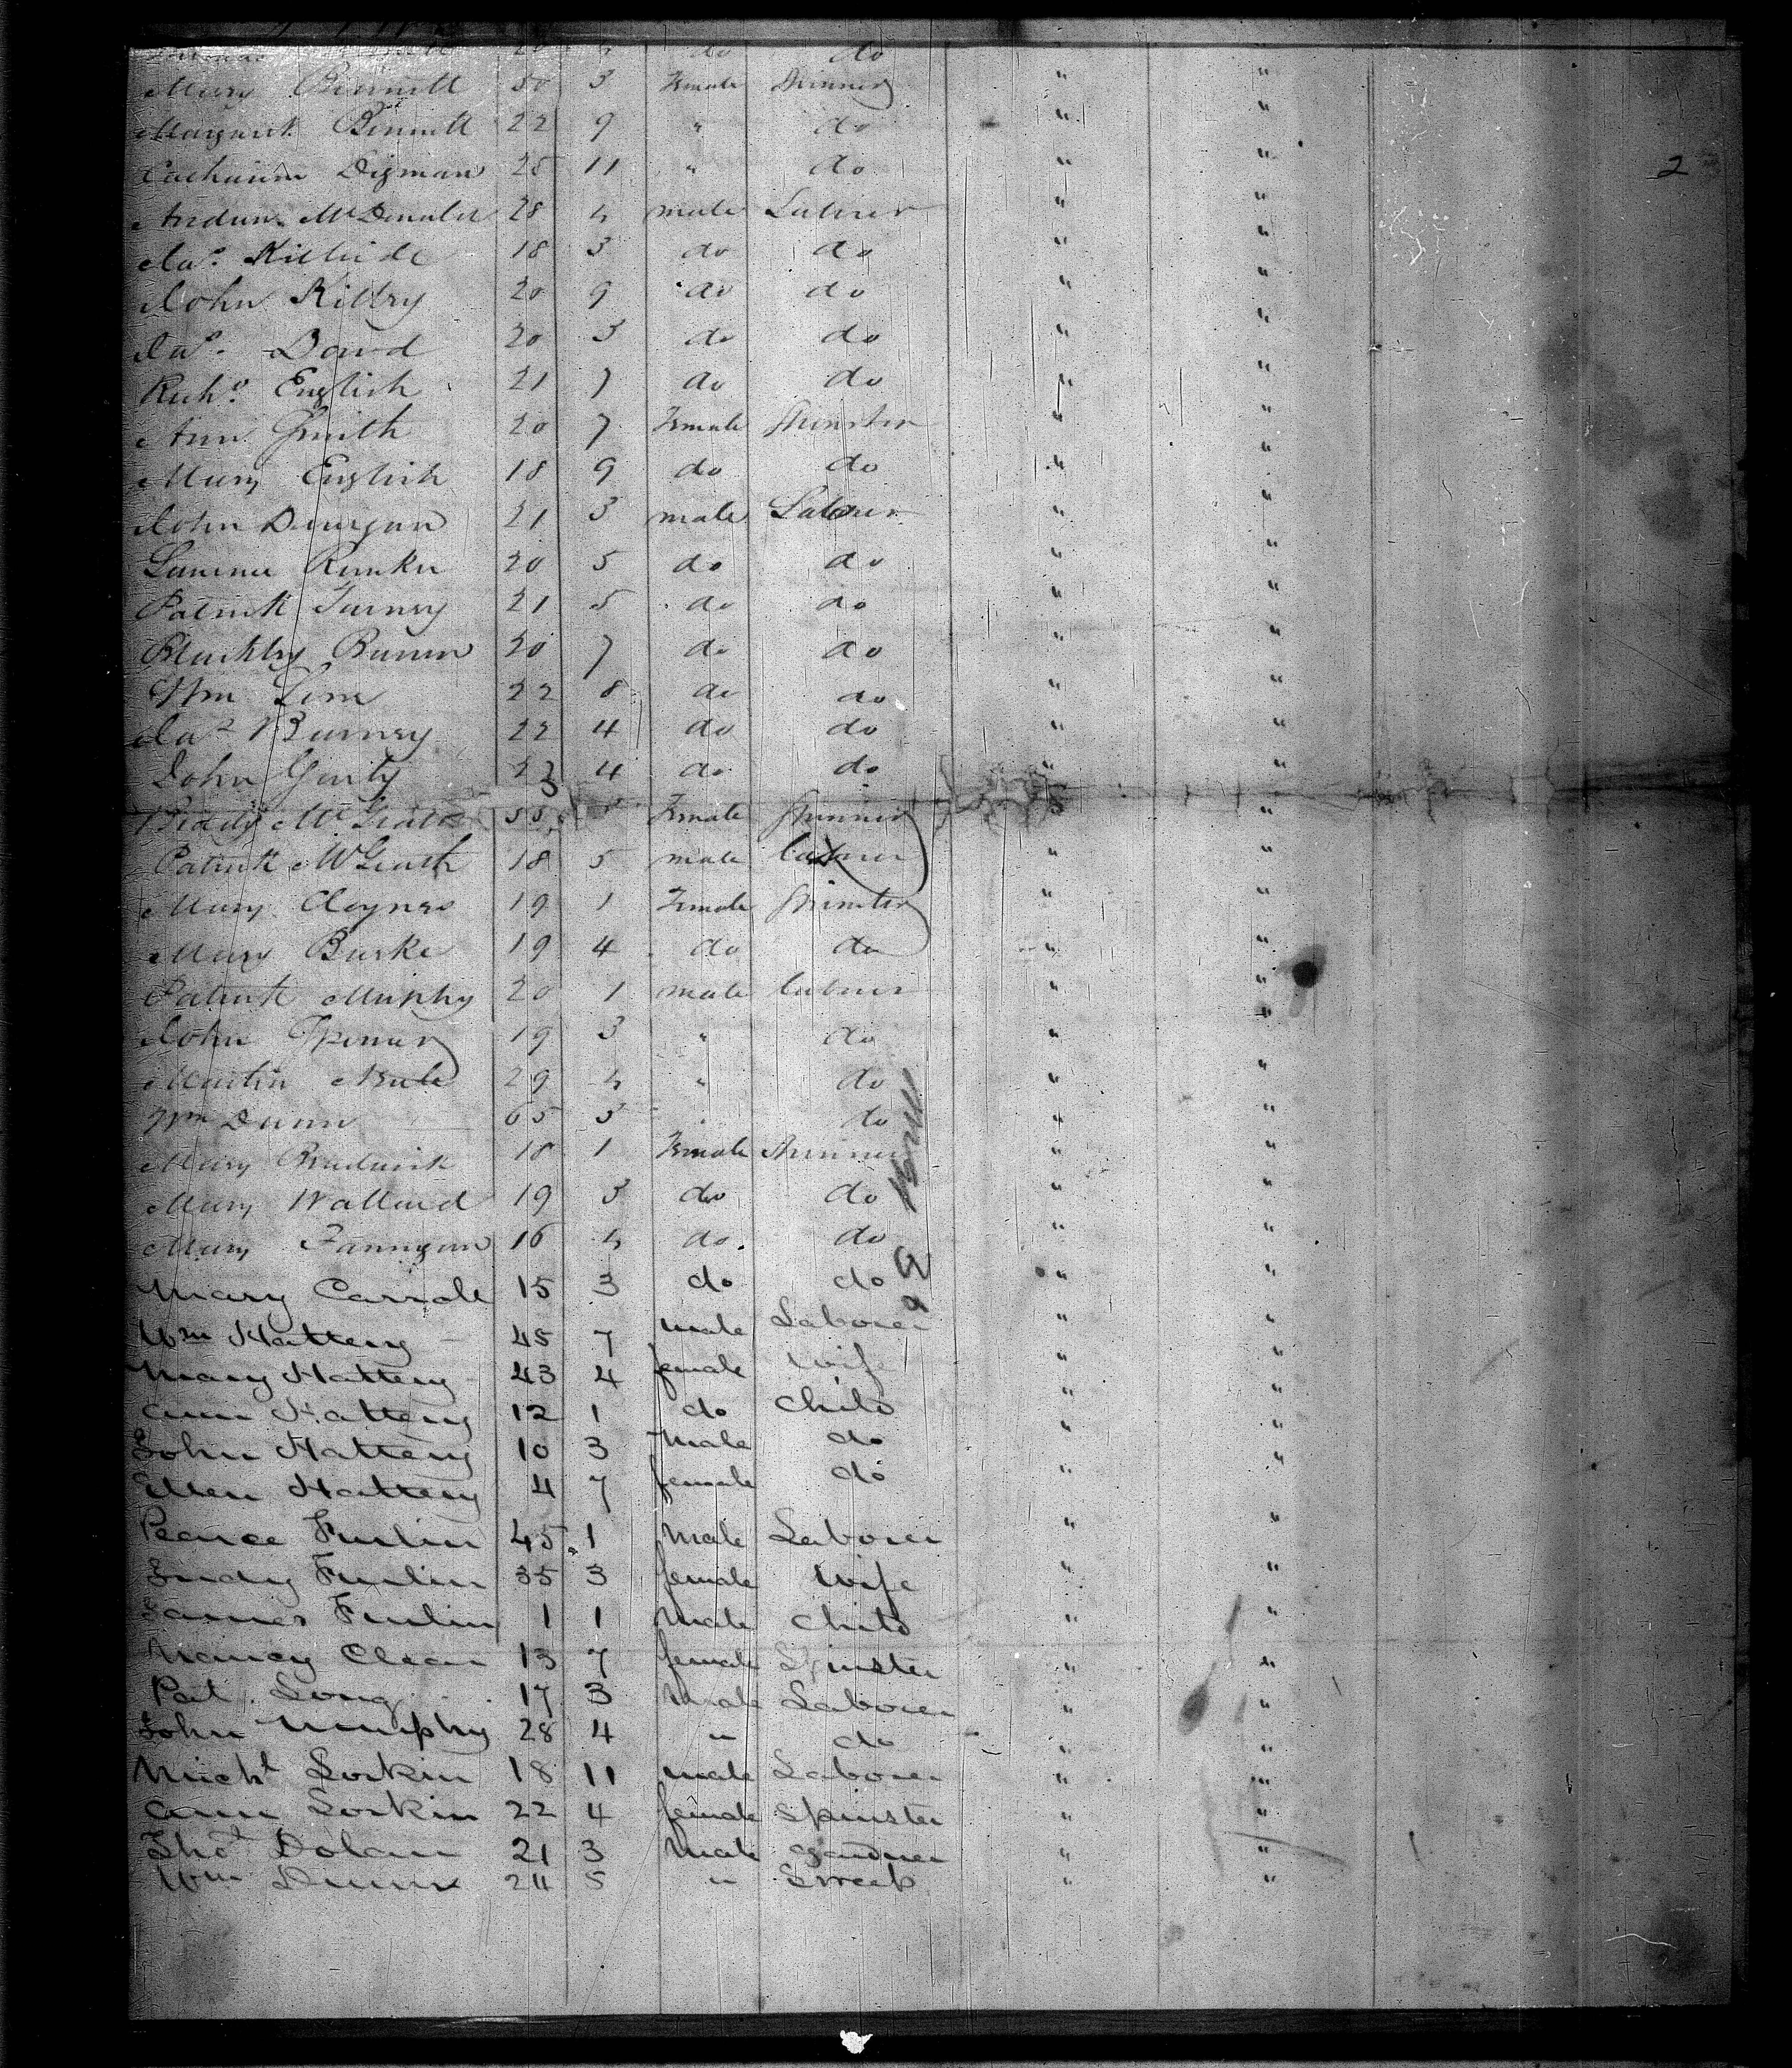 20 4 do do
Mary Bennett 50 3 Female Spinner " "
Margaret Bennett 22 9 " do " "
Catharine Digman 25 11 " do " "
2
Andrew McDonald 28 4 male Labrer " "
Jas. Kilbride 18 3 do do " "
John Kilbry 20 9 do do " "
Jas. Dowd 20 3 do do " "
Richd. English 21 7 do do " "
Ann Smith 20 7 Female Spinster " "
Mary English 18 9 do do " "
John Dunigan 21 3 male Labrer " "
20 5 do do " "
Patrick 21 5 do do " "
20 7 do do " "
Wm 22 8 do do " "
Jas Burney 22 4 do do " "
John Garty 23 4 do do " "
Biddy McGrath 55 Female Spinner " "
Patrick McGrath 18 5 male labrer " "
Mary 19 1 Female Spinster " "
Mary Burke 19 4 do do " "
Patrick Murphy 20 1 male labrer " "
John 19 3 " do " "
Martin 29 4 " do " "
Wm Dunn 65 3 " do " "
Mary Broderick 18 1 Female Spinner " "
Mary Wallard 19 3 do do " "
Mary Fannigan 16 4 do. do " "
Mary Carroll 15 3 do do " "
Wm Hattery 45 7 male Laborer " "
Mary Hattery 43 4 female wife " "
Ann Hattery 12 1 do Child " "
John Hattery 10 3 Male do " "
Ellen Hattery 4 7 female do " "
Pearce Furlin 45 1 Male Laborer " "
Judy Furlin 35 3 female Wife " "
James Furlin 1 1 Male Child " "
Nancy Clear 13 7 female Spinster " "
Pat. Long 17 3 Male Laborer " "
John Murphy 28 4 " do " "
Michl Lorkin 18 11 male Laborer " "
Ann Lorkin 22 4 female Spinster " "
Thos Dolan 21 3 Male Gardner " "
Wm Dunn 24 5 " Sweep " "